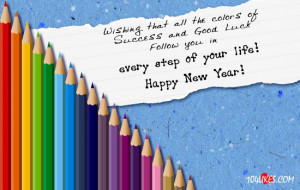 Wishing that all the colors of
Success and Good Luck
Follow you in
every step of your life!
Happy New Year!
104LIKES.COM